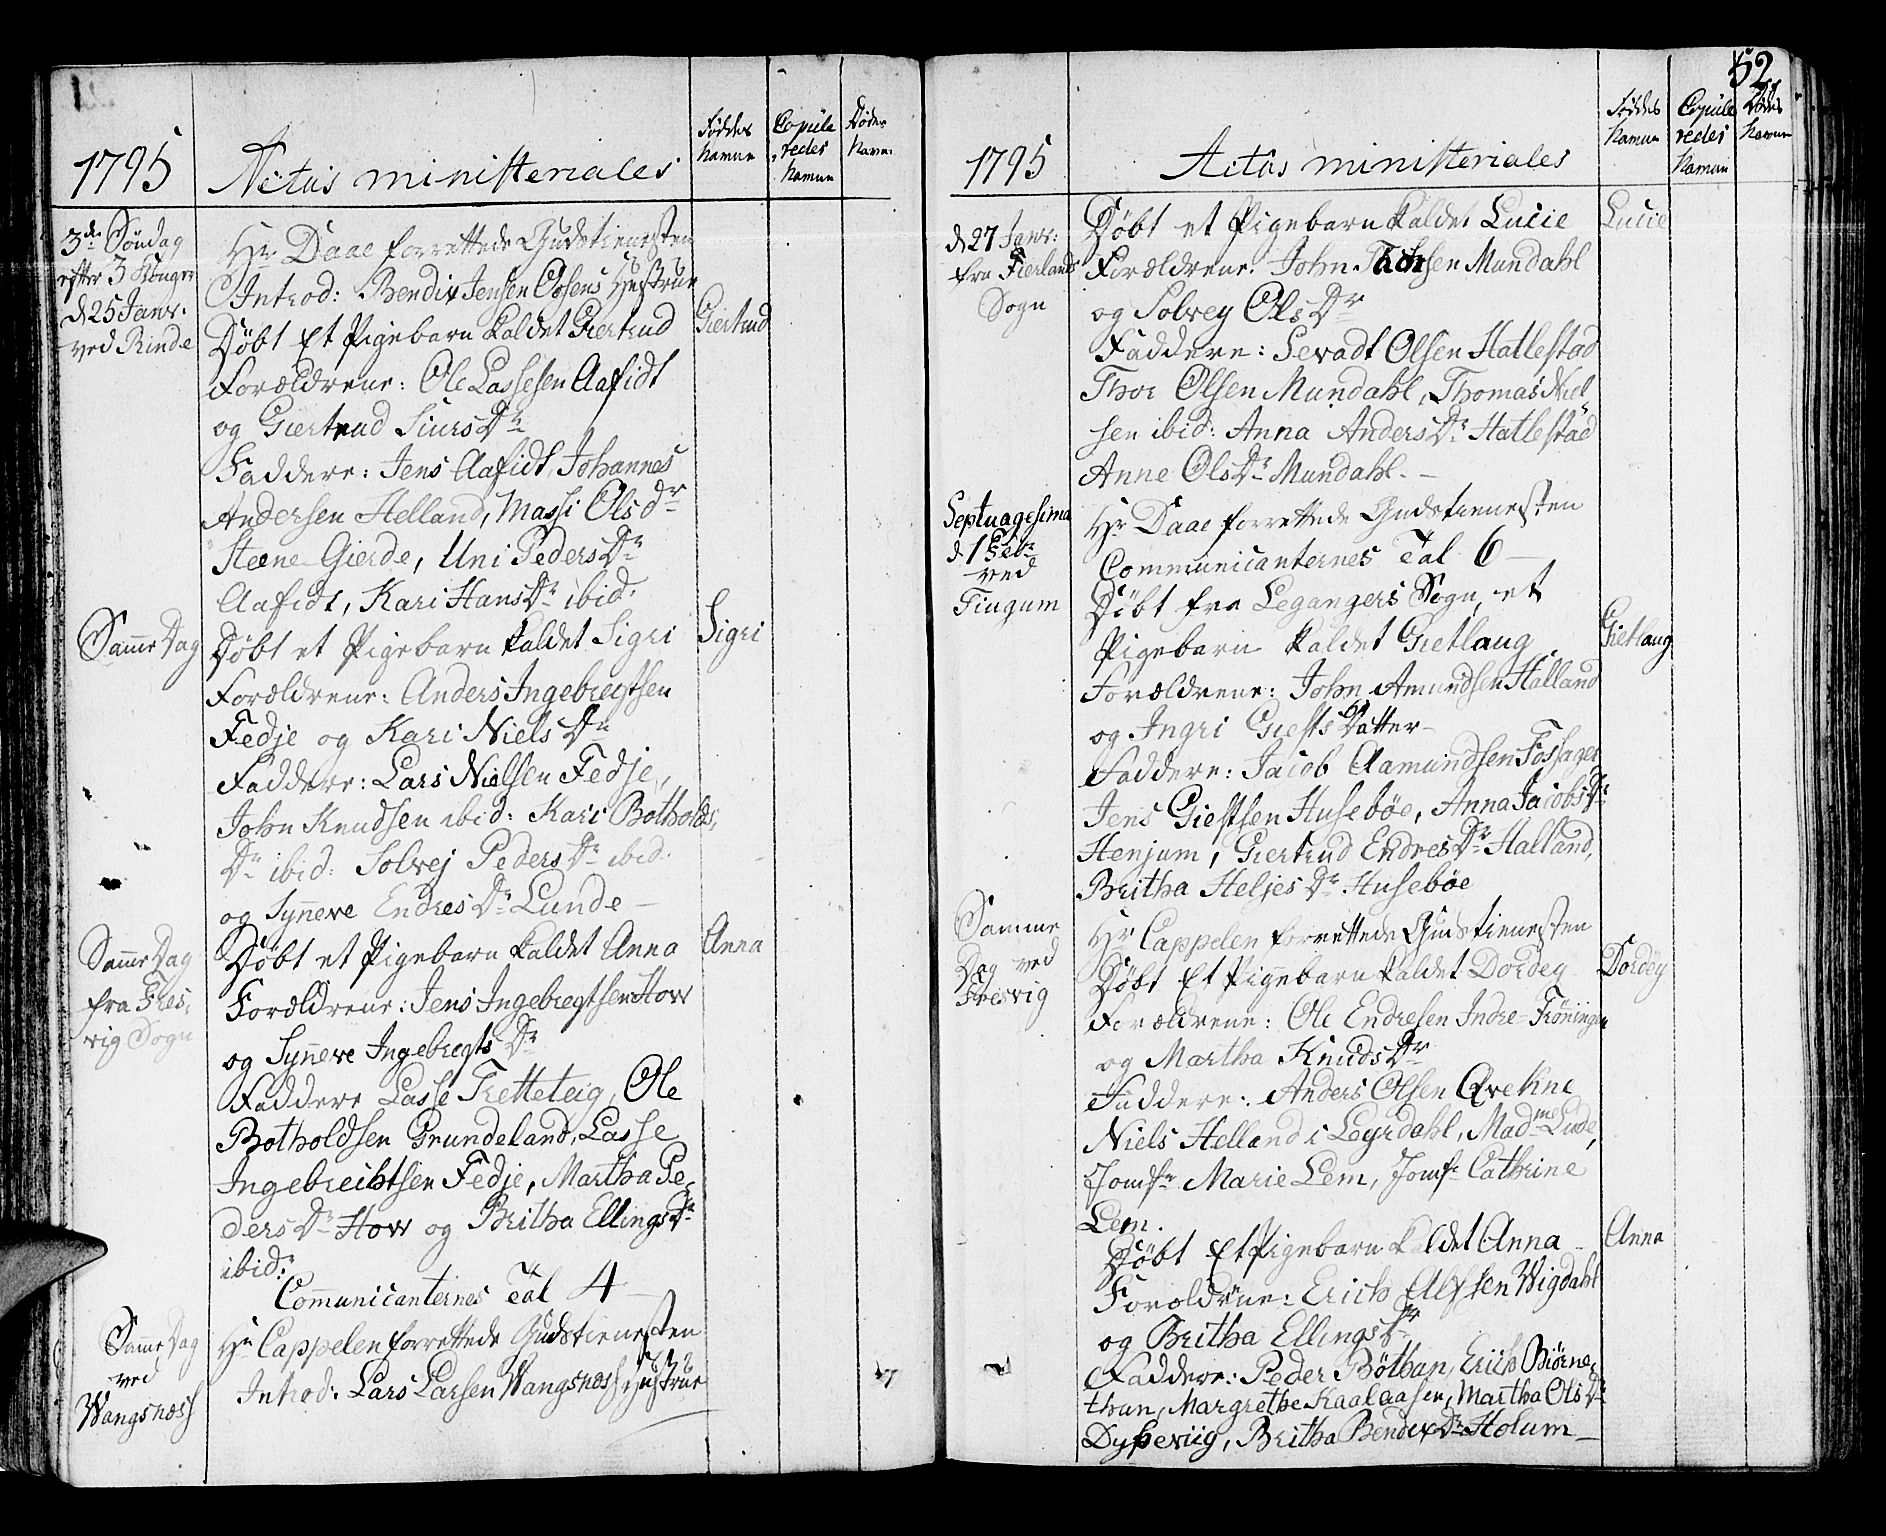 1795
Actus ministeriales
Føddes Navne
Copuleredes Navne
Dødes Navne
3de Søndag
efter 3 Konger
d 25 Janr.
ved Rinde
Hr Daae forrettede Gudstienesten
Introd: Bendix Jensen Oosens Hustrue
Døbt Et Pigebarn kaldet Giertrud
Giertrud
Forældrene: Ole Lassesen Aafidt
og Giertrud Siurs Dr
Faddere: Jens Aafidt, Johannes
Andersen Helland, Massi Ols dr
Steene Gierde, Uni Peders Dr
Aafidt, Kari Hans Dr ibid.
Samme Dag
Døbt et Pigebarn kaldet Sigri
Sigri
Forældrene: Anders Ingebregtsen
Fedje og Kari Niels Dr
Faddere: Lars Nielsen Fedje,
John Knudsen ibid: Kari Botholds
Dr ibid: Solvej Peders Dr ibid.
og Synneve Endres Dr Lunde
Samme Dag
fra Fres-
vig Sogn
Døbt et Pigebarn kaldet Anna
Anna
Forældrene: Jens Ingebregtsen How
og Synneve Ingebregts Dr
Faddere Lasse Tretteteig, Ole
Botholdsen Grundeland, Lasse
Ingebreichtsen Fedje, Martha Pe-
ders Dr How og Britha Ellings Dr
ibid:
Communicanternes Tal 4
Samme Dag
ved
Wangsness
Hr Cappelen forrettede Gudstienesten
Introd: Lars Larsen Wangsness Hustrue
52
1795
Actus ministeriales
Føddes Navne
Copuleredes Navne
Dødes Navne
d 27 Janr:
fra Fierlands
Sogn
Døbt et Pigebarn kaldet Lucie
Lucie
Forældrene: John Mundahl
og Solvey Ols Dr
Faddere: Sevadt Olsen Hatlestad
Thor Olsen Mundahl, Thomas Niel-
sen ibid: Anna Anders Dr Hatlestad
Anne Ols Dr Mundahl.
Septuagesima
d 1 Febr
ved
Tiugum
Hr Daae forrettede Gudstienesten
Communicanternes Tal 6
Døbt fra Legangers Sogn et
Pigebarn kaldet Gietlaug
Gietlaug
Forældrene: John Amundsen Halland
og Ingri Giests Datter
Faddere: Jacob Aamundsen Fossager
Jens Giestsen Husebøe, Anna Jacobs Dr
Henjum, Giertrud Endres Dr Halland,
Britha Heljes Dr Husebøe
Samme
Dag ved
Fresvig
Hr Cappelen forrettede Gudstienesten
Døbt Et Pigebarn kaldet Dordey
Dordey
Forældrene: Ole Endresen Indre-Frøningen
og Martha Knuds Dr
Faddere: Anders Olsen Qvekne
Niels Helland i Leyrdahl, Madme Lude,
Jomfr Marie Lem, Jomfr Cathrine
Lem.
Døbt Et Pigebarn kaldet Anna
Anna
Forældrene: Erich Wigdahl
og Britha Ellings Dr
Faddere: Peder Bøthun, Erich Biørne-
thun, Margrethe Kaalaasen, Martha Ols Dr
Dysseviig, Britha Bendex Dr Holum